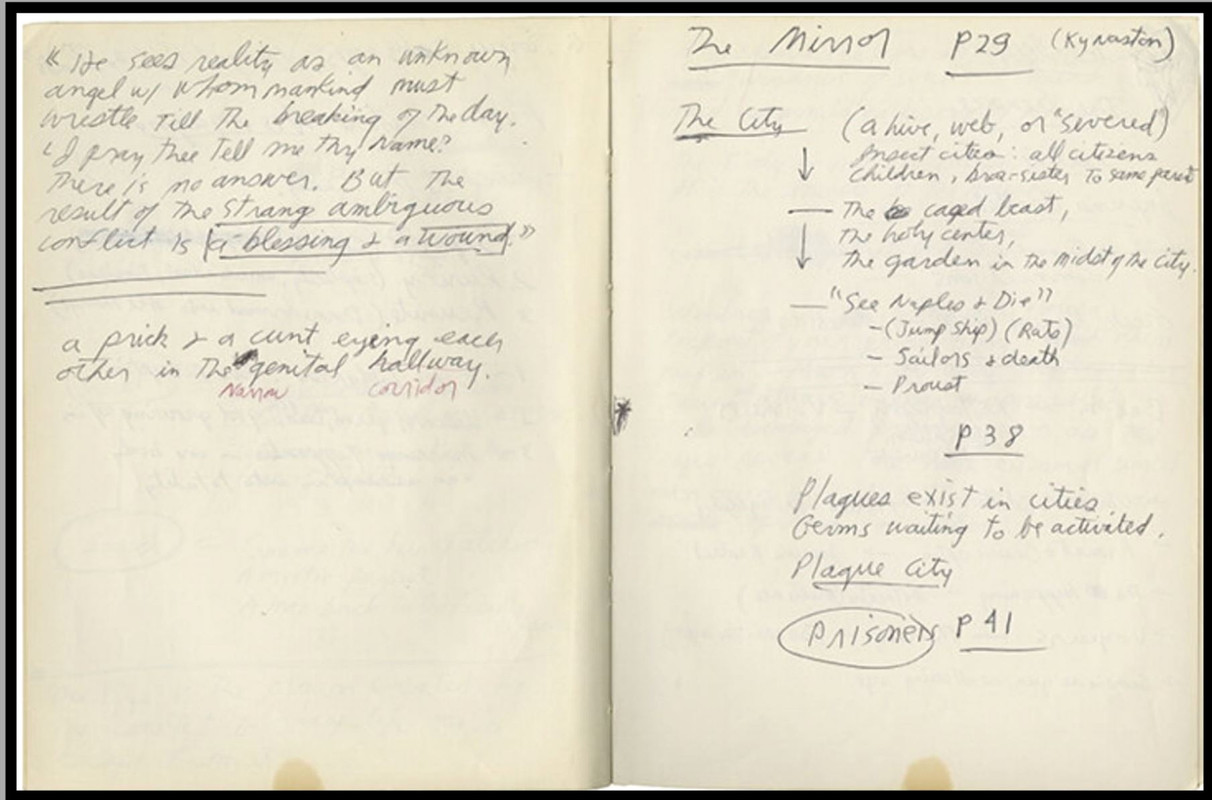 "He sees reality as an unknown
angel w/ whom mankind must
wrestle till the breaking of the day.
'I pray thee tell me thy name?
There is no answer. But the
result of the strang ambiguous
conflict is a blessing & a wound."
a prick & a cunt eyeing each
other in the genital hallway.
Narrow corridor
The Mirror P29 (Kynaston)
The City (a hive, web, or "severed")
Insect cities: all citizens
children, bro-sister to same parent
— The caged beast,
the holy center,
the garden in the midst of the city.
— "See Naples & Die"
- (Jump ship) (Rats)
- Sailors & death
- Proust
P 38
Plagues exist in cities.
Germs waiting to be activated.
Plague City
Prisoners P 41